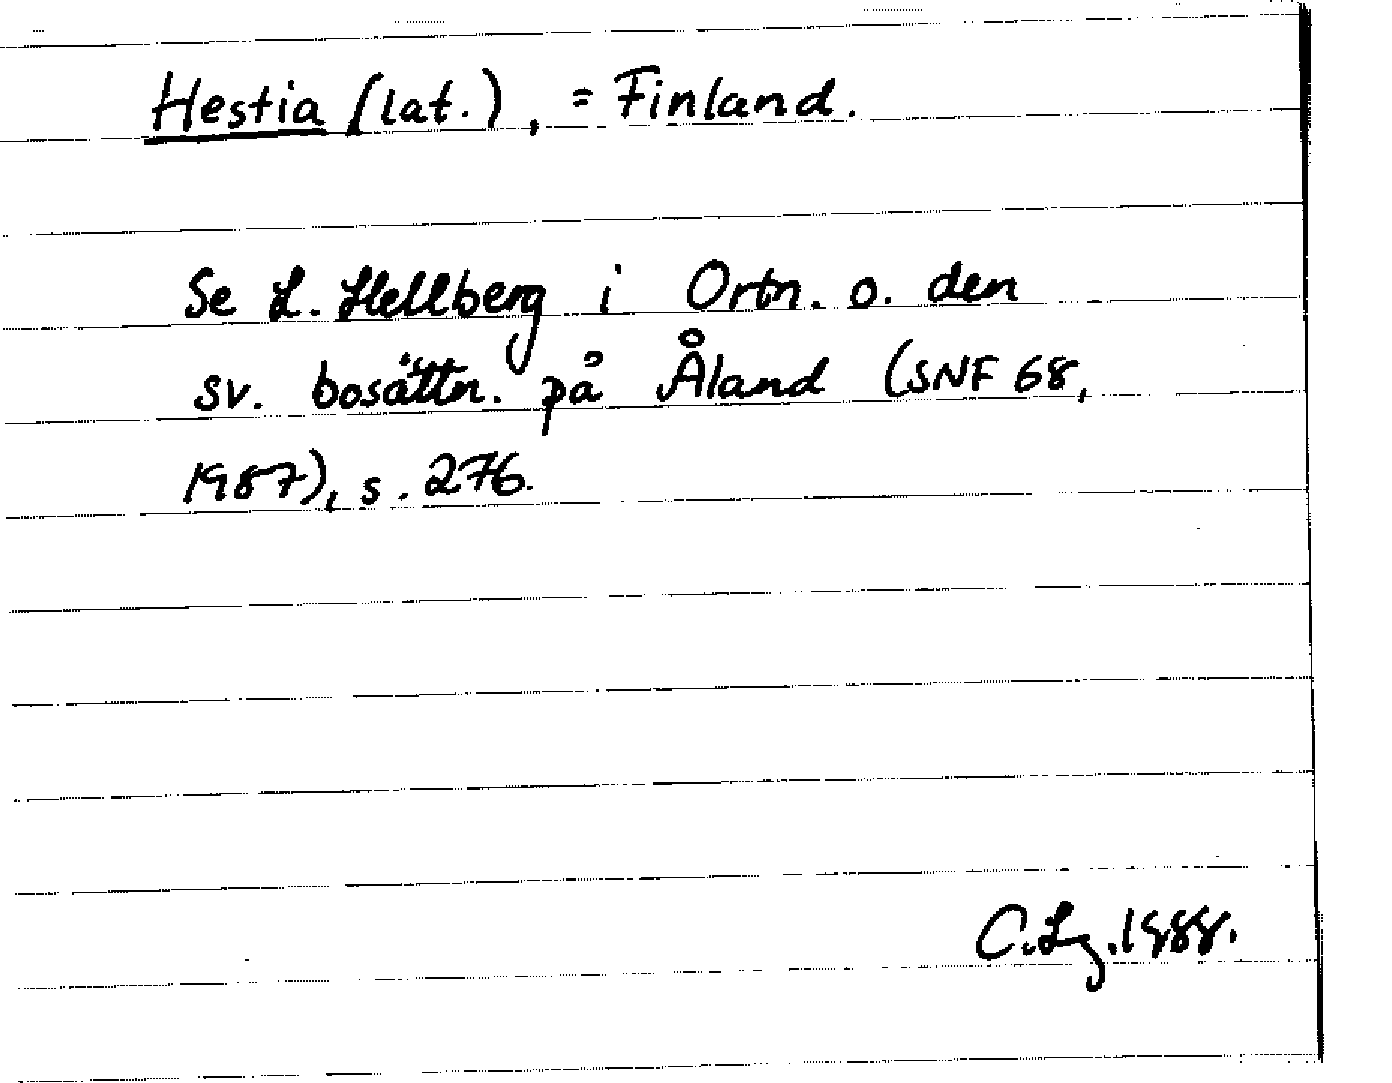 Hestia (lat.), = Finland.
Se L. Hellberg i Ortn. o. den
sv. bosättn. på Åland (SNF 68,
1987), s. 276.
C. Lg. 1988.